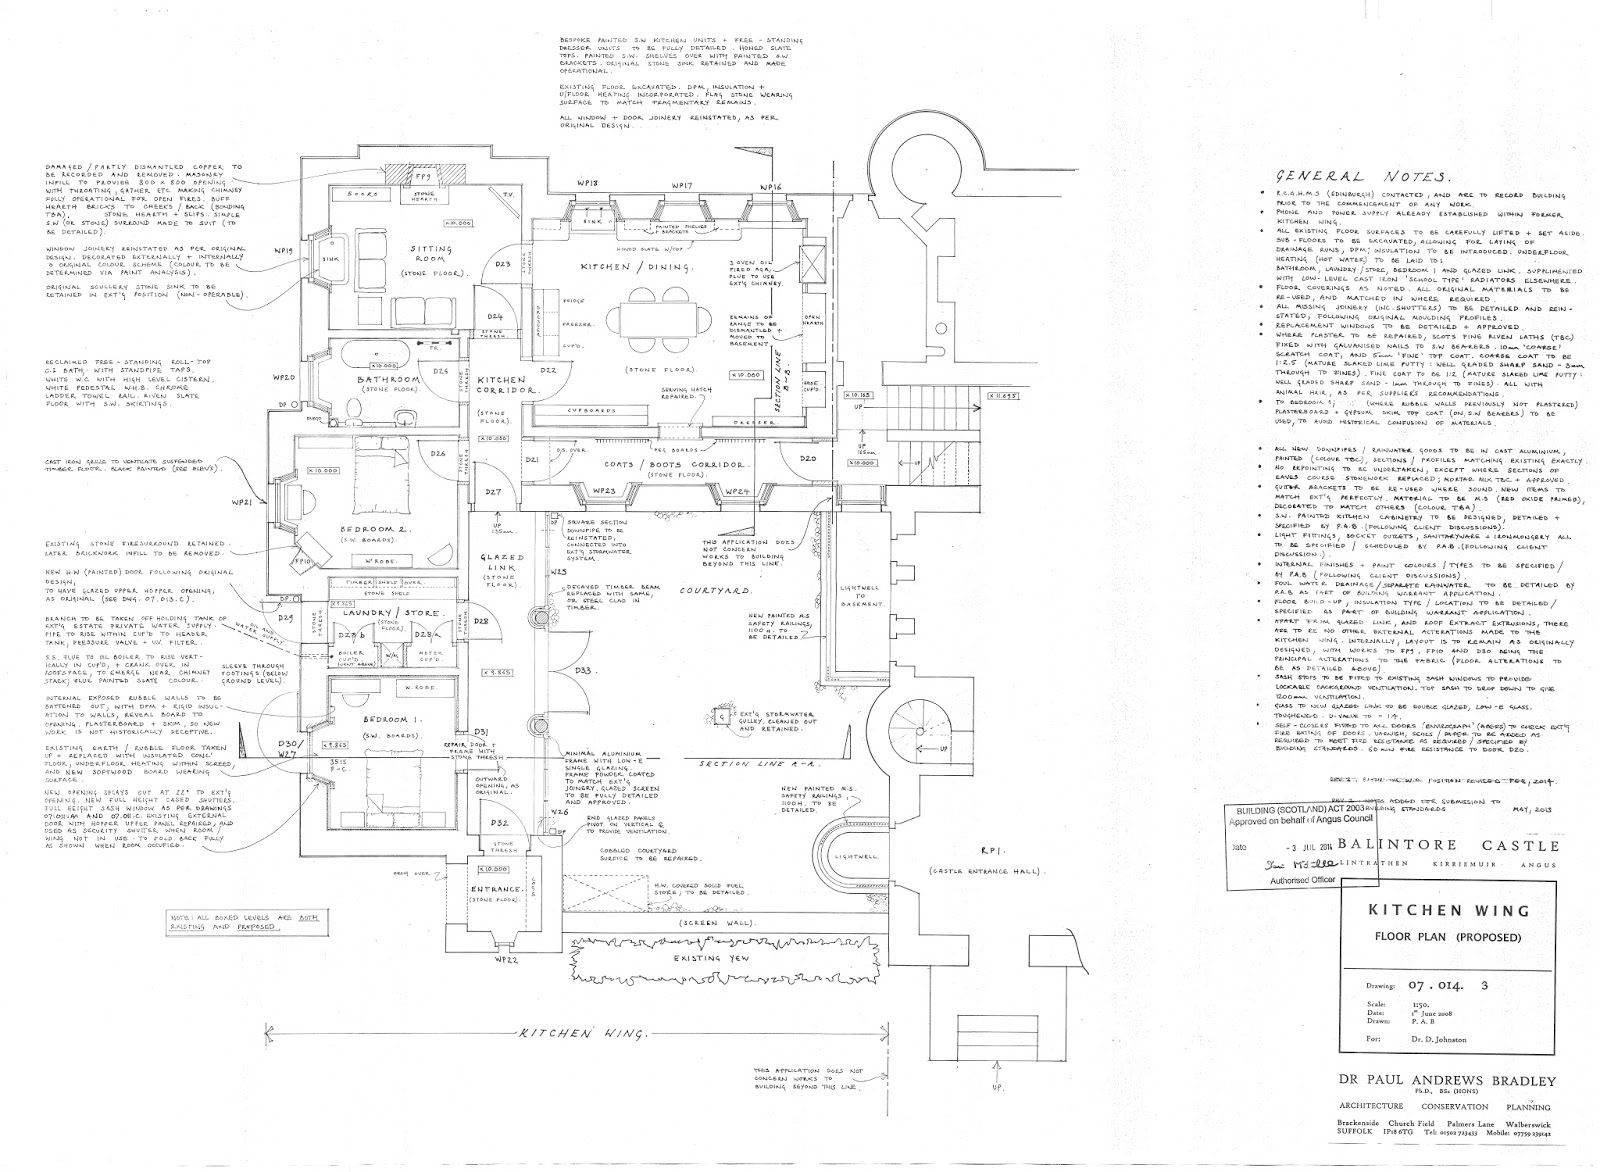 BESPOKE PAINTED S.W KITCHEN UNITS + FREE-STANDING
DRESSER UNITS TO BE FULLY DETAILED. HONED SLATE
TOPS. PAINTED S.W. SHELVES OVER WITH PAINTED S.W
BRACKETS. ORIGINAL STONE SINK RETAINED AND MADE
OPERATIONAL.
EXISTING FLOOR EXCAVATED. DPM, INSULATION +
U/FLOOR HEATING INCORPORATED. FLAG STONE WEARING
SURFACE TO MATCH FRAGMENTARY REMAINS.
ALL WINDOW + DOOR JOINERY REINSTATED, AS PER
ORIGINAL DESIGN.
DAMAGED / PARTLY DISMANTLED COPPER TO
BE RECORDED AND REMOVED. MASONRY
INFILL TO PROVIDE 800 x 800 OPENING
WITH THROATING, GATHER ETC MAKING CHIMNEY
FULLY OPERATIONAL FOR OPEN FIRES. BUFF
HEARTH BRICKS TO CHEEKS / BACK (BONDING
TBA). STONE HEARTH + SLIPS. SIMPLE
S.W (OR STONE) SURROUND MADE TO SUIT (TO
BE DETAILED).
WINDOW JOINERY REINSTATED AS PER ORIGINAL
DESIGN. DECORATED EXTERNALLY + INTERNALLY
TO ORIGINAL COLOUR SCHEME (COLOUR TO BE
DETERMINED VIA PAINT ANALYSIS).
ORIGINAL SCULLERY STONE SINK TO BE
RETAINED IN EXT'G POSITION (NON-OPERABLE).
RECLAIMED FREE-STANDING ROLL-TOP
C.I BATH - WITH STANDPIPE TAPS.
WHITE W.C WITH HIGH LEVEL CISTERN.
WHITE PEDESTAL W.H.B. CHROME
LADDER TOWEL RAIL. RIVEN SLATE
FLOOR WITH S.W. SKIRTINGS.
CAST IRON GRILLE TO VENTILATE SUSPENDED
TIMBER FLOOR. BLACK PAINTED (SEE ELEV'S).
EXISTING STONE FIRESURROUND RETAINED.
LATER BRICKWORK INFILL TO BE REMOVED.
NEW H.W (PAINTED) DOOR FOLLOWING ORIGINAL
DESIGN,
TO HAVE GLAZED UPPER HOPPER OPENING,
AS ORIGINAL (SEE DWG. 07.013.C).
BRANCH TO BE TAKEN OFF HOLDING TANK OF
EXT'G ESTATE PRIVATE WATER SUPPLY.
PIPE TO RISE WITHIN CUP'D TO HEADER
TANK, PRESSURE VALVE + U.V. FILTER.
S.S. FLUE TO OIL BOILER TO RISE VERT-
ICALLY IN CUP'D, + CRANK OVER IN
ROOFSPACE, TO EMERGE NEAR CHIMNEY
STACK; FLUE PAINTED SLATE COLOUR.
SLEEVE THROUGH
FOOTINGS (BELOW
GROUND LEVEL).
INTERNAL EXPOSED RUBBLE WALLS TO BE
BATTENED OUT, WITH DPM + RIGID INSUL-
ATION TO WALLS, REVEAL BOARD TO
OPENING. PLASTERBOARD + SKIM, SO NEW
WORK IS NOT HISTORICALLY DECEPTIVE.
EXISTING EARTH / RUBBLE FLOOR TAKEN
UP + REPLACED WITH INSULATED CONC'
FLOOR, UNDERFLOOR HEATING WITHIN SCREED,
AND NEW SOFTWOOD BOARD WEARING
SURFACE.
NEW OPENING SPLAYS CUT AT 22° TO EXT'G
OPENING. NEW FULL HEIGHT CASED SHUTTERS.
FULL HEIGHT SASH WINDOW AS PER DRAWINGS
EXISTING EXTERNAL
DOOR WITH HOPPER UPPER PANEL REPAIRED, AND
USED AS SECURITY SHUTTER WHEN ROOM /
WING NOT IN USE - TO FOLD BACK FULLY
AS SHOWN WHEN ROOM OCCUPIED.
NOTE: ALL BOXED LEVELS ARE BOTH
EXISTING AND PROPOSED.
FP9
BOOKS
STONE
HEARTH
T.V.
X 10.000
WP18
WP17
WP16
WP19
SINK
SINK
PAINTED SHELVES
+ BRACKETS
HONED SLATE W/TOP
SITTING
ROOM
(STONE FLOOR).
D23
D24
KITCHEN / DINING.
3 OVEN OIL
FIRED AGA,
FLUE TO USE
EXT'G CHIMNEY.
FRIDGE
FREEZER.
CUP'D
DRESSER
REMAINS OF
RANGE TO BE
DISMANTLED +
MOVED TO
BASEMENT.
OPEN
HEARTH
(STONE FLOOR).
X 10.000
SECTION LINE
B-B.
WP20
X 10.000
BATHROOM
(STONE FLOOR).
D25
KITCHEN
CORRIDOR.
(STONE
FLOOR).
D22
SERVING HATCH
REPAIRED.
CUPBOARDS
DRESSER
DP
X 10.165
X 11.695
UP
X 10.000
X 10.000
D26
D21
D.S. OVER
PEG BOARDS
COATS / BOOTS CORRIDOR.
(STONE FLOOR).
D20
UP
X 10.000
D27
WP23
WP24
WP21
BEDROOM 2.
(S.W. BOARDS).
FP10
W'ROBE.
UP
135mm.
GLAZED
LINK
(STONE
FLOOR).
SQUARE SECTION
DOWNPIPE TO BE
REINSTATED,
CONNECTED INTO
EXT'G STORMWATER
SYSTEM.
W25
DECAYED TIMBER BEAM
REPLACED WITH SAME,
OR STEEL CLAD IN
TIMBER.
THIS APPLICATION DOES
NOT CONCERN
WORKS TO BUILDING
BEYOND THIS LINE.
COURTYARD.
LIGHTWELL
TO
BASEMENT.
NEW PAINTED M.S
SAFETY RAILINGS,
1100 H. TO
BE DETAILED
TIMBER SHELF OVER
STONE SHELF
X 9.865
DP
D29
LAUNDRY / STORE.
(STONE
FLOOR).
D28b
D28a
D28
OIL AND
WATER SUPPLY
BOILER
CUP'D.
(VENT ABOVE)
W/M
METER
CUP'D.
D33
X 9.865
W.ROBE.
BEDROOM 1.
(S.W. BOARDS).
D30/
W27
X 9.865
D31
REPAIR DOOR +
FRAME WITH
STONE THRESH
OUTWARD
OPENING, AS
ORIGINAL.
MINIMAL ALUMINIUM
FRAME WITH LOW-E
SINGLE GLAZING.
FRAME POWDER COATED
TO MATCH EXT'G
JOINERY. GLAZED SCREEN
TO BE FULLY DETAILED
AND APPROVED.
W26
DP
END GLAZED PANELS
PIVOT ON VERTICAL ¢
TO PROVIDE VENTILATION.
COBBLED COURTYARD
SURFACE TO BE REPAIRED.
D32
STONE
THRESH
X 10.000
ENTRANCE.
(STONE FLOOR).
WP22
G
EXT'G STORMWATER
GULLEY, CLEANED OUT
AND RETAINED.
SECTION LINE A-A.
UP
NEW PAINTED M.S.
SAFETY RAILINGS,
1100H. TO BE
DETAILED.
LIGHTWELL
RP1.
(CASTLE ENTRANCE HALL).
H.W. COVERED SOLID FUEL
STORE; TO BE DETAILED.
(SCREEN WALL).
EXISTING YEW
KITCHEN WING.
THIS APPLICATION DOES NOT
CONCERN WORKS TO
BUILDING BEYOND THIS LINE.
UP.
GENERAL NOTES.
R.C.A.H.M.S (EDINBURGH) CONTACTED, AND ARE TO RECORD BUILDING
PRIOR TO THE COMMENCEMENT OF ANY WORK.
PHONE AND POWER SUPPLY ALREADY ESTABLISHED WITHIN FORMER
KITCHEN WING.
ALL EXISTING FLOOR SURFACES TO BE CAREFULLY LIFTED + SET ASIDE.
SUB-FLOORS TO BE EXCAVATED, ALLOWING FOR LAYING OF
DRAINAGE RUNS, DPM; INSULATION TO BE INTRODUCED. UNDERFLOOR
HEATING (HOT WATER) TO BE LAID TO:
BATHROOM, LAUNDRY / STORE, BEDROOM 1 AND GLAZED LINK. SUPPLIMENTED
WITH LOW-LEVEL CAST IRON 'SCHOOL TYPE' RADIATORS ELSEWHERE.
FLOOR COVERINGS AS NOTED. ALL ORIGINAL MATERIALS TO BE
RE-USED, AND MATCHED IN WHERE REQUIRED.
ALL MISSING JOINERY (INC. SHUTTERS) TO BE DETAILED AND REIN-
STATED, FOLLOWING ORIGINAL MOULDING PROFILES.
REPLACEMENT WINDOWS TO BE DETAILED + APPROVED.
WHERE PLASTER TO BE REPAIRED, SCOTS PINE RIVEN LATHS (TBC)
FIXED WITH GALVANISED NAILS TO S.W BEARERS. 10mm 'COARSE'
SCRATCH COAT, AND 5mm 'FINE' TOP COAT. COARSE COAT TO BE
1:2.5 (MATURE SLAKED LIME PUTTY : WELL GRADED SHARP SAND - 3mm
THROUGH TO FINES). FINE COAT TO BE 1:2 (MATURE SLAKED LIME PUTTY :
WELL GRADED SHARP SAND - 1mm THROUGH TO FINES). ALL WITH
ANIMAL HAIR, AS PER SUPPLIER'S RECOMMENDATIONS.
TO BEDROOM 1; (WHERE RUBBLE WALLS PREVIOUSLY NOT PLASTERED)
PLASTERBOARD + GYPSUM SKIM TOP COAT (ON S.W BEARERS) TO BE
USED, TO AVOID HISTORICAL CONFUSION OF MATERIALS.
ALL NEW DOWNPIPES / RAINWATER GOODS TO BE IN CAST ALUMINIUM,
PAINTED (COLOUR TBC), SECTIONS / PROFILES MATCHING EXISTING EXACTLY.
NO REPOINTING TO BE UNDERTAKEN, EXCEPT WHERE SECTIONS OF
EAVES COURSE STONEWORK REPLACED; MORTAR MIX TBC + APPROVED.
GUTTER BRACKETS TO BE RE-USED WHERE SOUND. NEW ITEMS TO
MATCH EXT'G PERFECTLY. MATERIAL TO BE M.S (RED OXIDE PRIMED),
DECORATED TO MATCH OTHERS (COLOUR TBA).
S.W. PAINTED KITCHEN CABINETRY TO BE DESIGNED, DETAILED +
SPECIFIED BY P.A.B (FOLLOWING CLIENT DISCUSSIONS).
LIGHT FITTINGS, SOCKET OUTLETS, SANITARYWARE + IRONMONGERY ALL
TO BE SPECIFIED / SCHEDULED BY P.A.B. (FOLLOWING CLIENT
DISCUSSION).
INTERNAL FINISHES + PAINT COLOURS / TYPES TO BE SPECIFIED /
BY P.A.B (FOLLOWING CLIENT DISCUSSIONS).
FOUL WATER DRAINAGE / SEPARATE RAINWATER TO BE DETAILED BY
P.A.B AS PART OF BUILDING WARRANT APPLICATION.
FLOOR BUILD-UP, INSULATION TYPE / LOCATION TO BE DETAILED /
SPECIFIED AS PART OF BUILDING WARRANT APPLICATION.
APART FROM GLAZED LINK, AND ROOF EXTRACT EXTRUSIONS, THERE
ARE TO BE NO OTHER EXTERNAL ALTERATIONS MADE TO THE
KITCHEN WING. INTERNALLY, LAYOUT IS TO REMAIN AS ORIGINALLY
DESIGNED, WITH WORKS TO FP9, FP10 AND D30 BEING THE
PRINCIPAL ALTERATIONS TO THE FABRIC (FLOOR ALTERATIONS TO
BE AS DETAILED ABOVE)
SASH STOPS TO BE FITTED TO EXISTING SASH WINDOWS TO PROVIDE
LOCKABLE BACKGROUND VENTILATION. TOP SASH TO DROP DOWN TO GIVE
VENTILATION.
GLASS TO NEW GLAZED LINK TO BE DOUBLE GLAZED, LOW-E GLASS.
TOUGHENED. U-VALUE TO - 1.4.
SELF-CLOSERS FITTED TO ALL DOORS
REQUIRED TO MEET FIRE RESISTANCE AS REQUIRED / SPECIFIED BY
BUILDING STANDARDS. 60 MIN FIRE RESISTANCE TO DOOR D20.
POSITION REVISED FEB, 2014.
NOTES ADDED FOR SUBMISSION TO
BUILDING STANDARDS MAY, 2013
BUILDING (SCOTLAND) ACT 2003
Approved on behalf of Angus Council
Date -3 JUL 2014
Authorised Officer
BALINTORE CASTLE
LINTRATHEN KIRRIEMUIR ANGUS
KITCHEN WING
FLOOR PLAN (PROPOSED)
Drawing: 07 . 014. 3
Scale: 1:50.
Date: 1st June 2008
Drawn: P. A. B
For: Dr. D. Johnston
DR PAUL ANDREWS BRADLEY
Ph.D., BSc (HONS)
ARCHITECTURE CONSERVATION PLANNING
Brackenside Church Field Palmers Lane Walberswick
SUFFOLK IP18 6TG Tel: 01502 723433 Mobile: 07759 239142